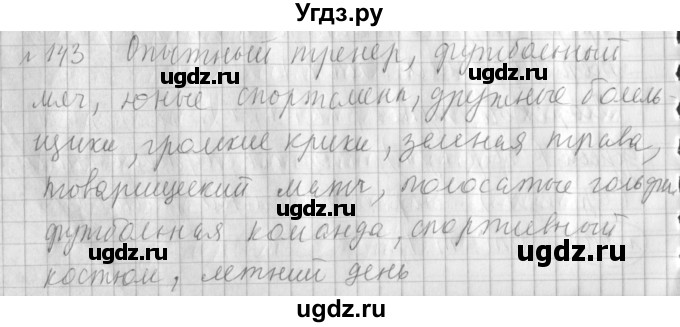 Угдз.ру
№143 Опытный тренер, футбольный
мяч, юные спортсмены, дружные болель-
щики, громкие крики, зеленая трава,
товарищеский матч, полосатые гольфы,
футбольная команда, спортивный
костюм, летний день
ugdz.ru
ugdz.ru
ugdz.ru
ugdz.ru
ugdz.ru
ugdz.ru
ugdz.ru
ugdz.ru